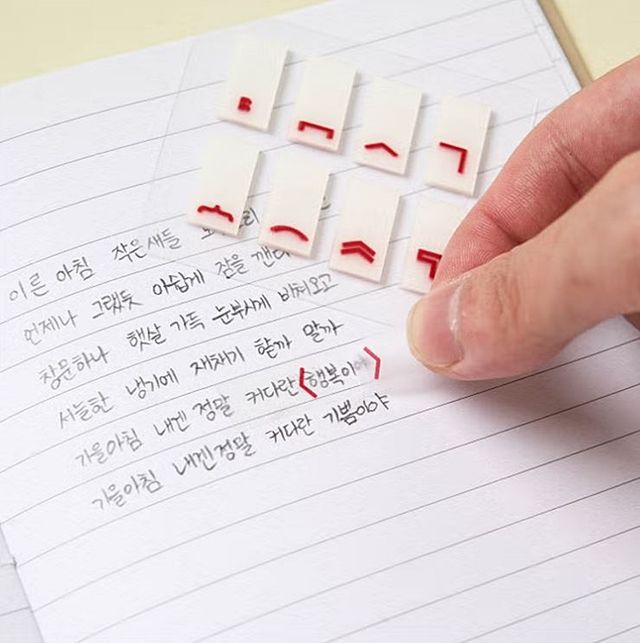 이른 아침 작은새들
언제나 그랬듯 아쉽게 잠을 깬다
창문하나 햇살 가득 눈부시게 비쳐오고
서늘한 냉기에 재채기 할까 말까
가을아침 내겐 정말 커다란 〈행복이야〉
가을아침 내겐정말 커다란 기쁨이야